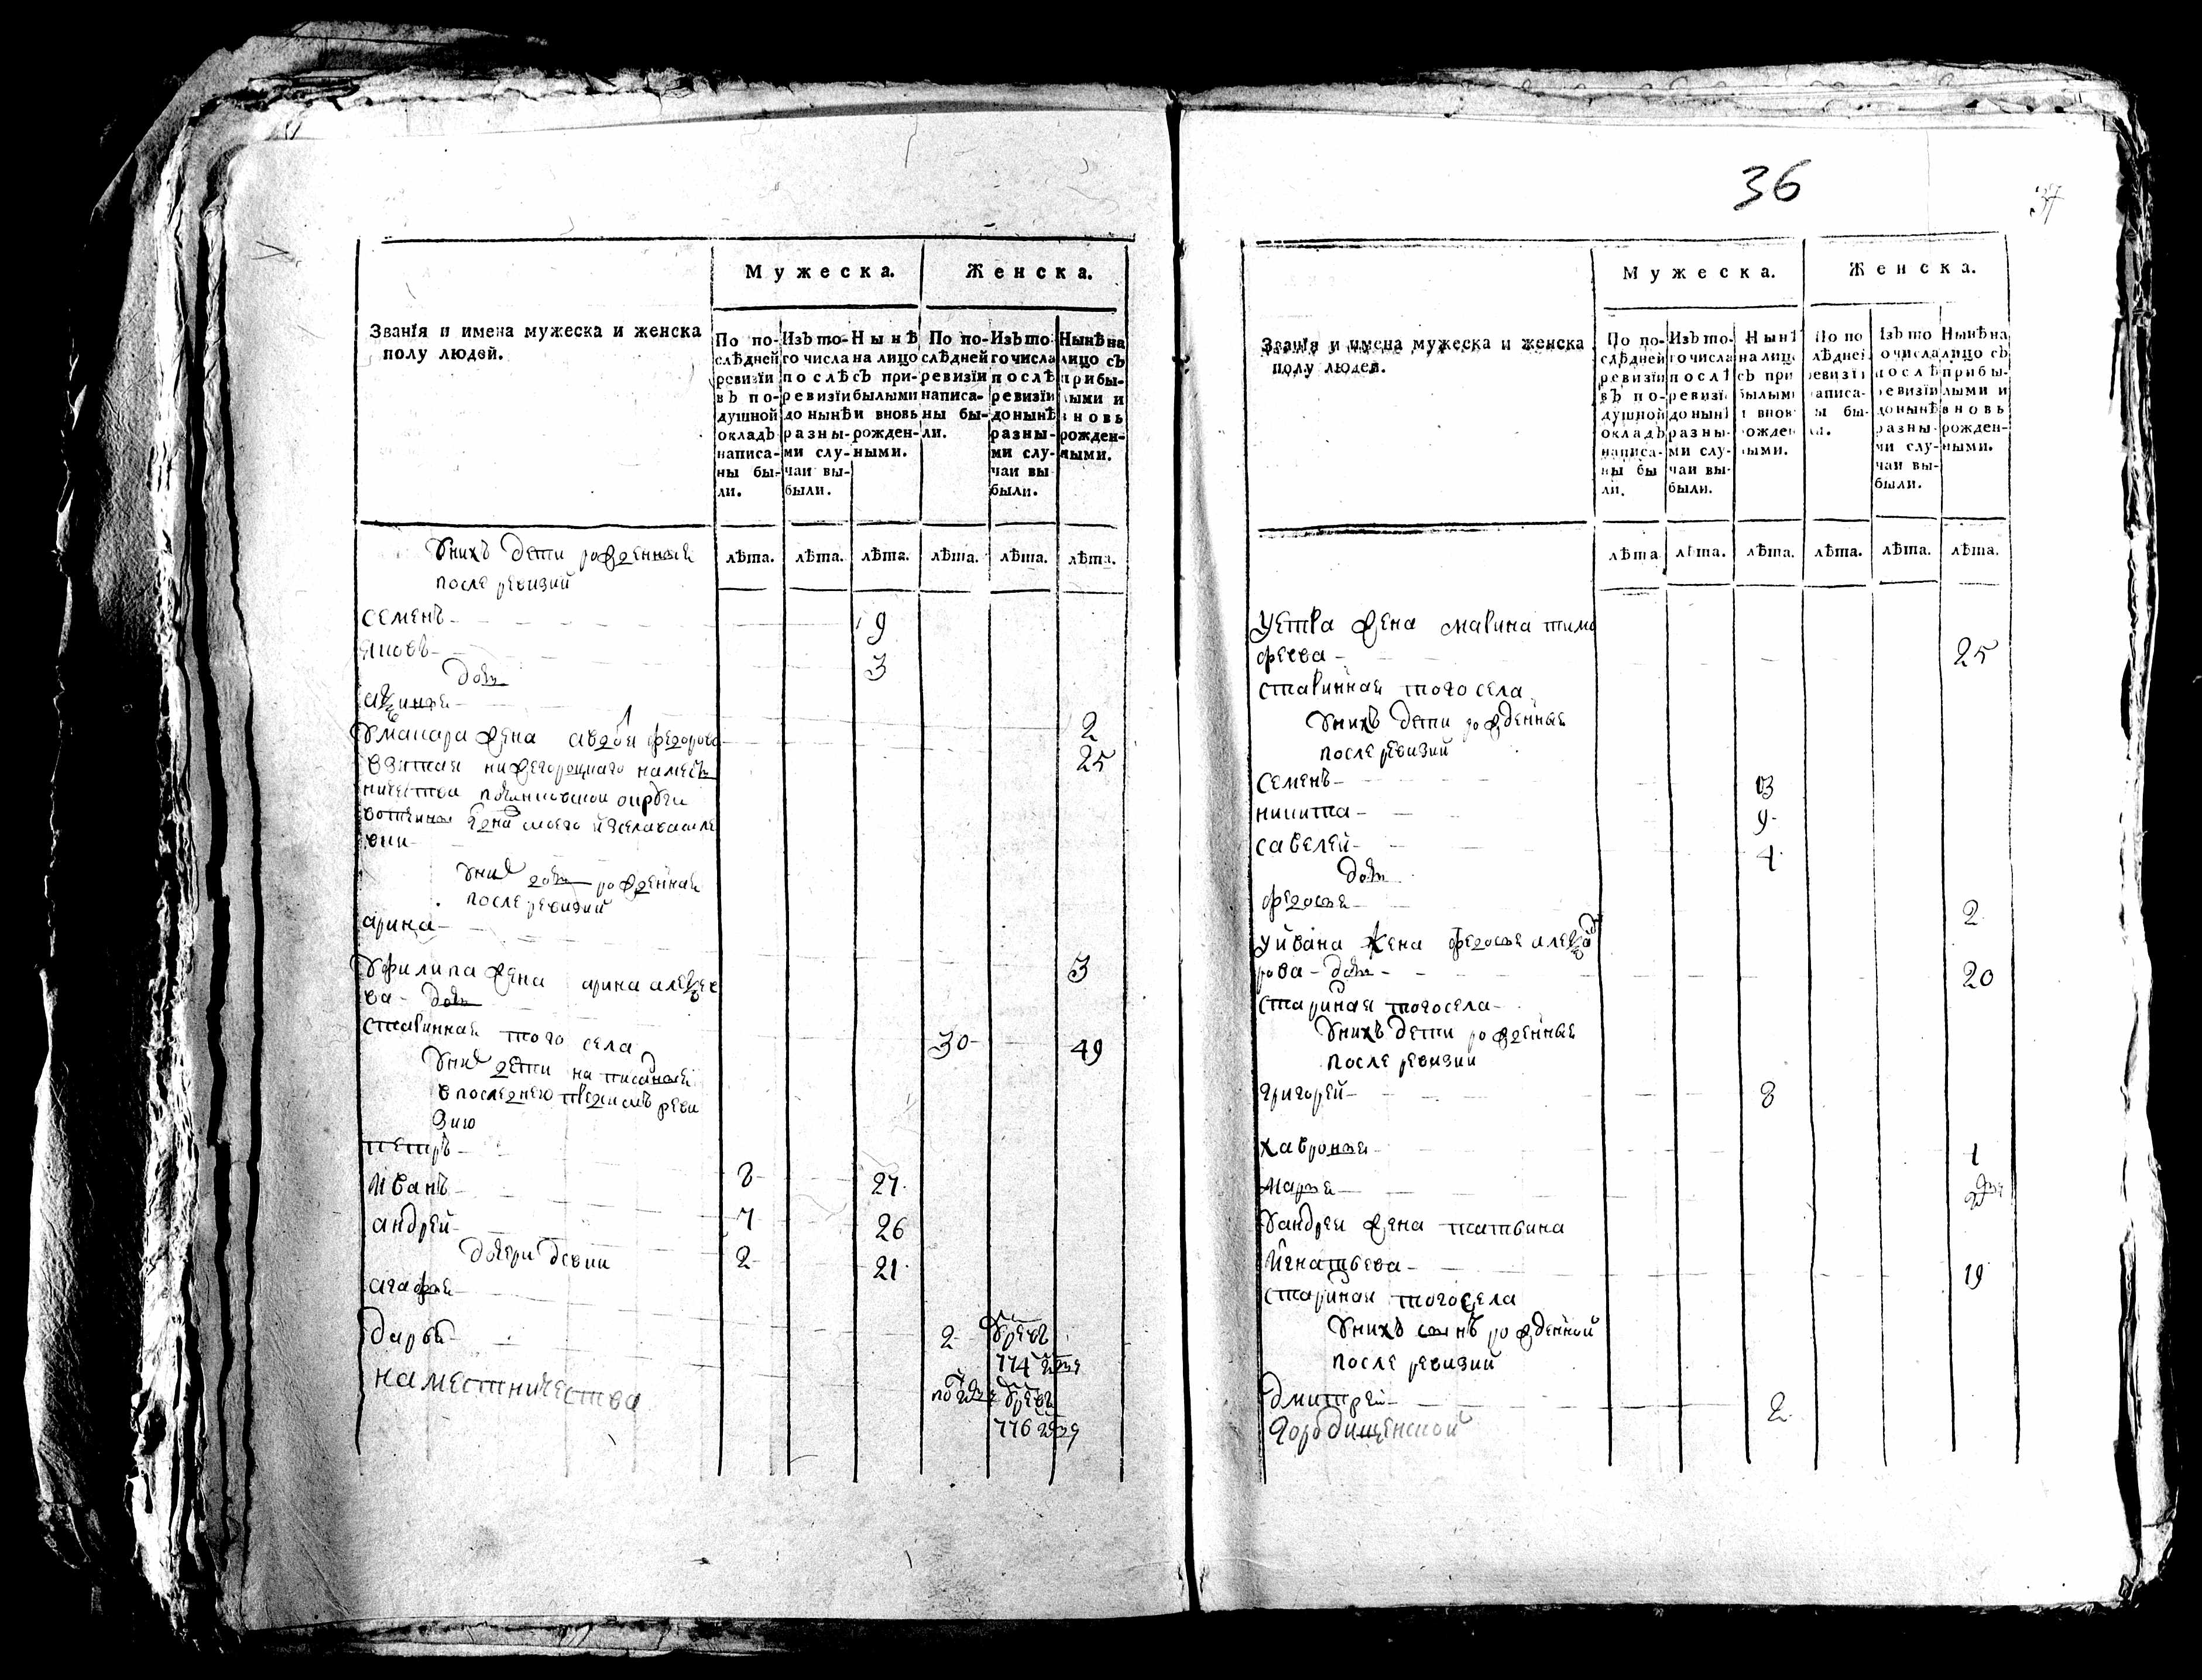 Мужеска. Женска.
Званїя и имена мужеска и женска
полу людей.
По по-
слѣдней
ревизїи
вЪ по-
душной
окладЪ
написа-
ны бы-
ли.
ИзЪ то-
го числа
послѣ
ревизїи
до нынѣ
разны-
ми слу-
чаи вы-
были.
Нынѣ
на лицо
сЪ при-
былыми
и вновь
рожден-
ными.
По по-
слѣдней
ревизїи
написа-
ны бы-
ли.
ИзЪ то
го числа
послѣ
ревизїи
до нынѣ
разны-
ми слу-
чаи вы
были.
Нынѣ на
лицо сЪ
прибы-
лыми и
вновь
рожден-
ными.
лѣта. лѣта. лѣта. лѣта. лѣта. лѣта.
Унихъ дети рожденные
после ревизий
семенъ 9
яковъ 3
дочь
2
Умакара жена авдотя федорова 25
взятая нижегороцкаго намест
ничества починковской округи
вотчины
вки
дочь рожденная
после ревизий
арина 3
Уфилипа жена арина алексее
ва дочь 30 49
старинная того села
Уних дети написаные
впоследнею пред симъ реви
зию
петръ 8 27
Иванъ 7 26
андрей 2 21
дочери девки
агафья 2 774
дарья 776
наместничества
36
37
Мужеска. Женска.
Званїя и имена мужеска и женска
полу людей.
По по-
слѣдней
ревизїи
вЪ по-
душной
окладЪ
написа-
ны бы
ли.
ИзЪ то-
го числа
послѣ
ревизї
до нынѣ
разны-
ми слу-
чаи вы-
были.
Нынѣ
на лиц
сЪ при
былым
и внов
ожде
ными.
По по
лѣдней
евизїи
аписа-
ы бы-
ли.
ИзЪ то
о числа
послѣ
ревизїи
до нынѣ
разны-
ми слу-
чаи вы-
были.
Нынѣ на
лицо сЪ
прибы-
лыми и
вновь
рожден-
ными.
лѣта лѣта. лѣта. лѣта. лѣта. лѣта.
Упетра жена марина тимо
феева 25
старинная того села
Унихъ дети рожденные
после ревизий
семенъ 13
никита 9
савелей 4
дочь
федосья 2
Уйвана жена федосья александ
рова дочь 20
стариная того села
Унихъ дети рожденные
после ревизии
григорей 8
хавронья 1
марья
Уандрея жена татьяна
Игнатьева 19
стариная того села
Унихъ сынъ рожденной
после ревизий
дмитрей 2
городищенской